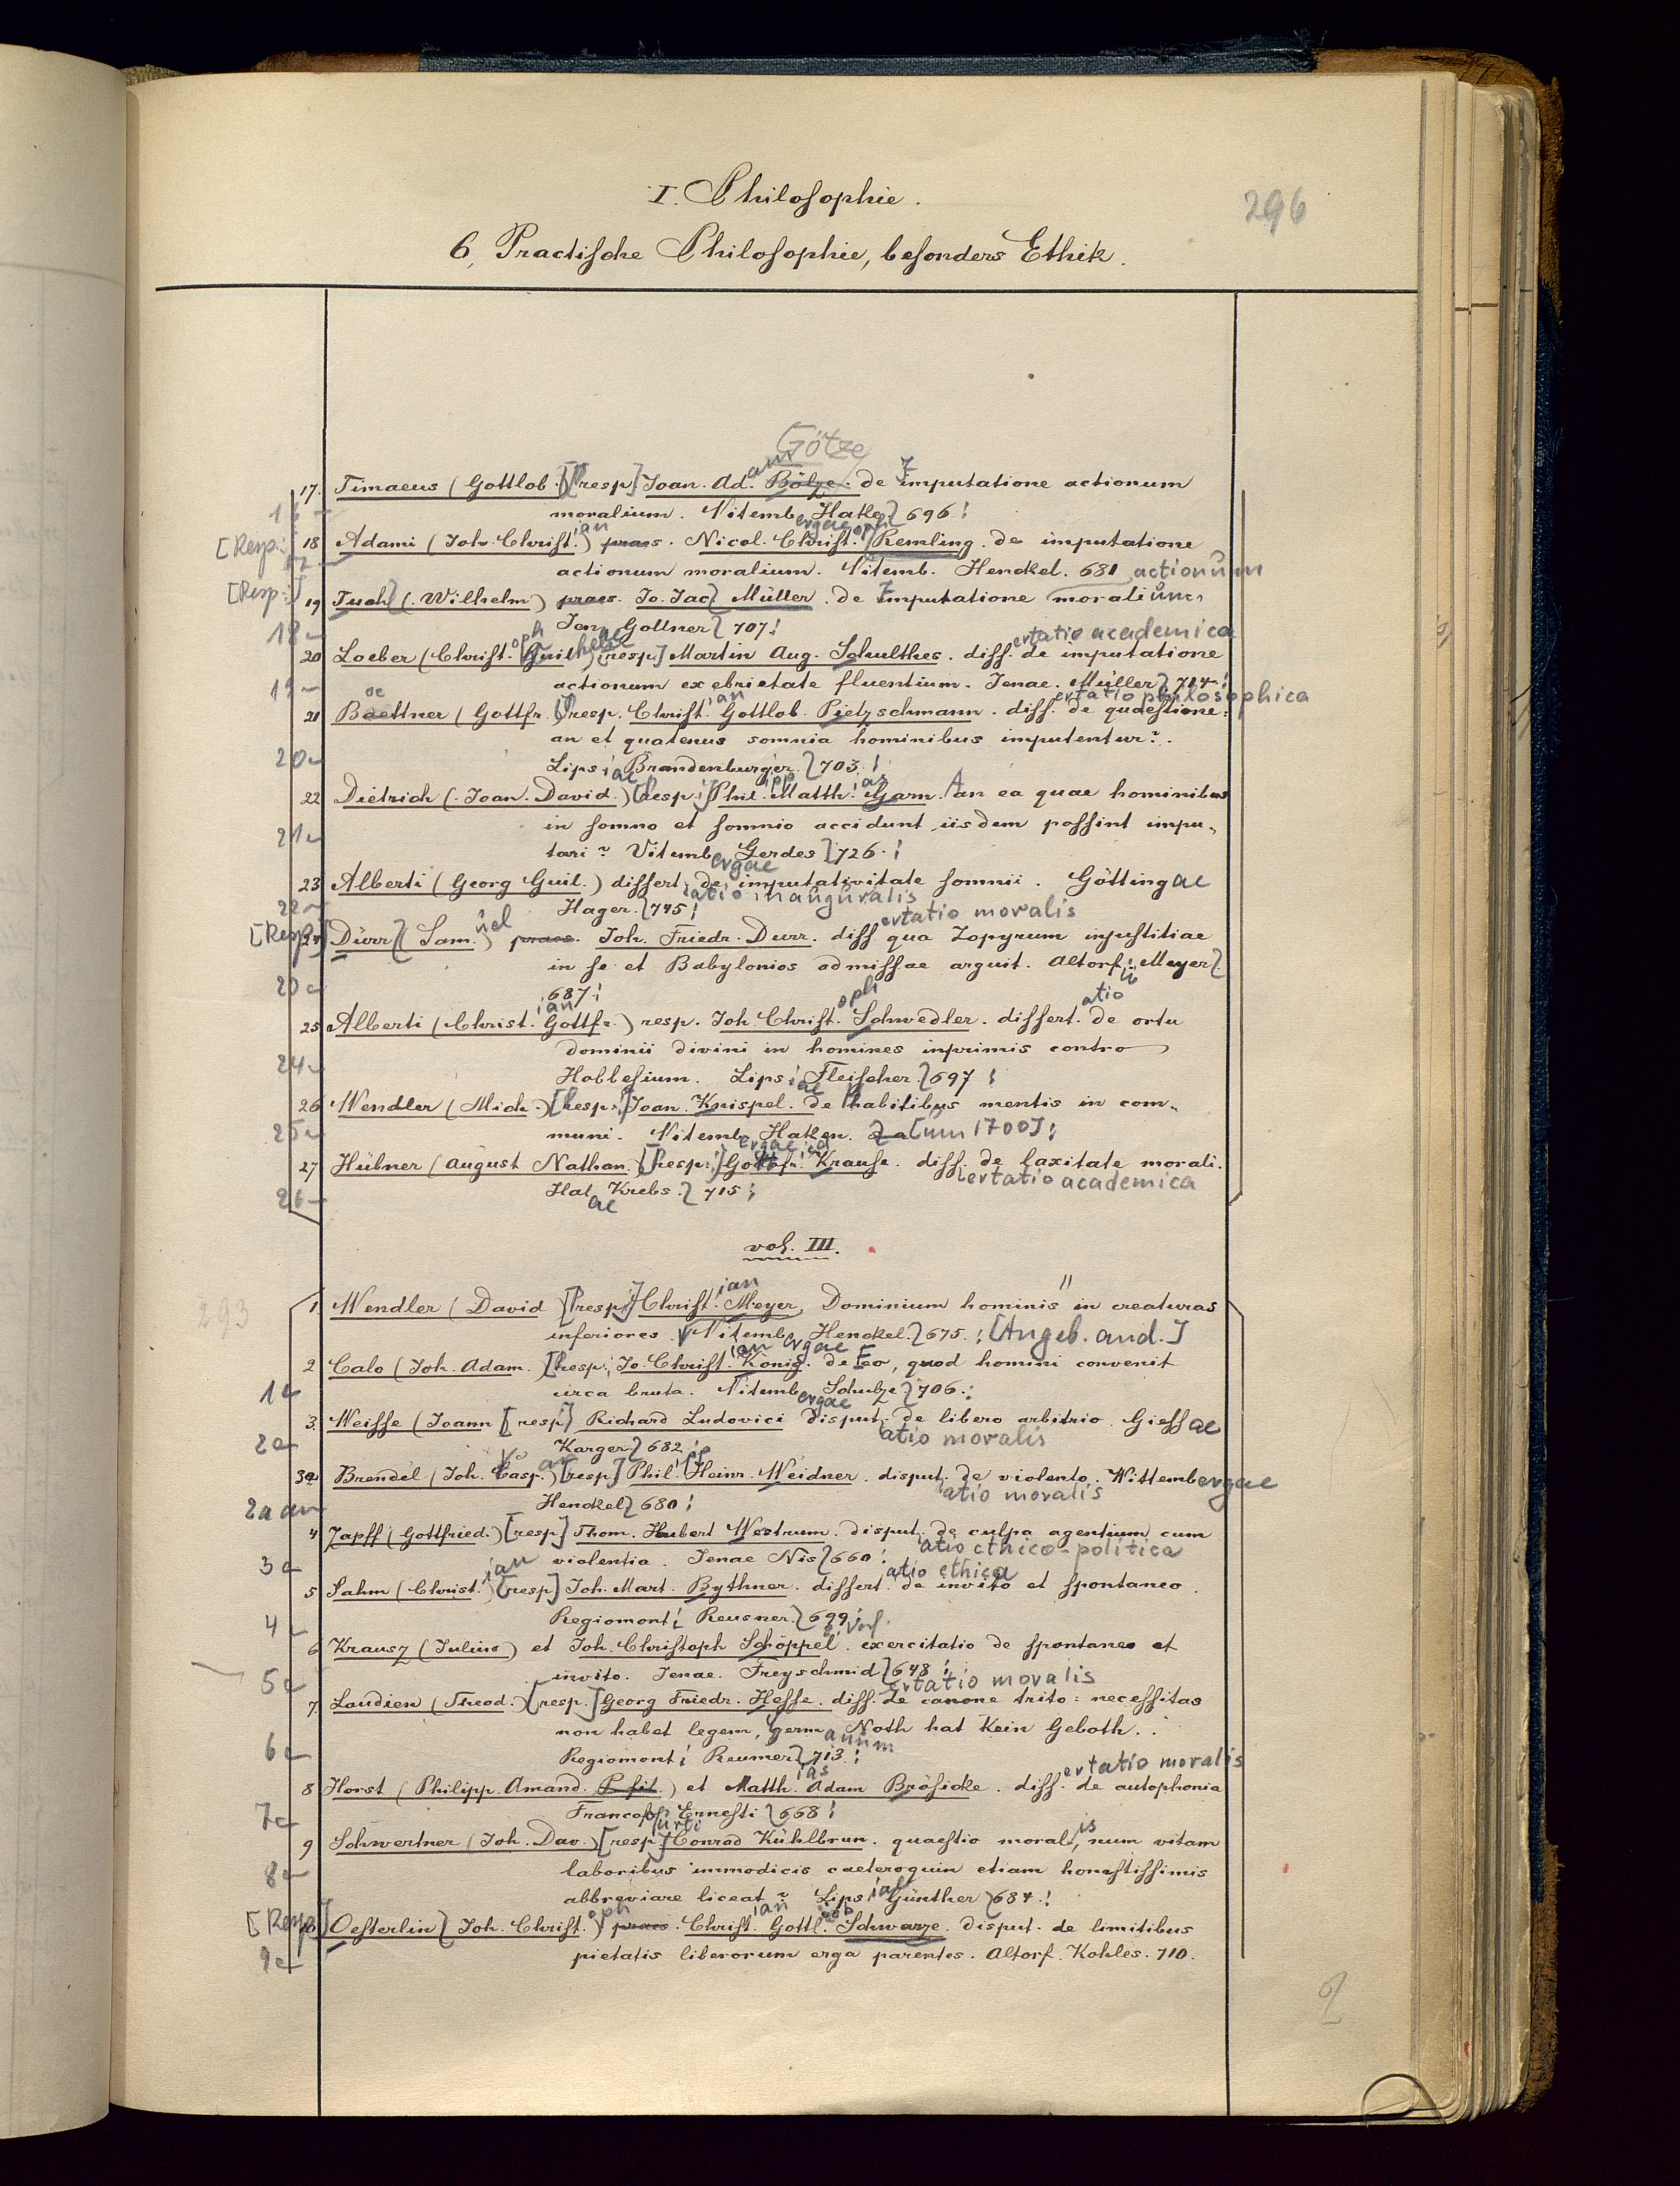 I. Philosophie.
296
6, Practische Philosophie, besonders Ethik.
Götze
17. Timaeus (Gottlob.) [resp.] Joan. Adam Bölze. de Imputatione actionum
moralium. Vitemb. Hake 696.
[Resp.:] 18 Adami (Joh. Christian) praes. Nicol. Christoph Remling. de imputatione
17
actionum moralium. Vitembergae Henckel. 681
actionum
[Resp.:] 19 Tuch (Wilhelm) praes. Jo. Jac. Müller. de Imputatione moralium
18 Jen. Gollner 707.
20 Loeber (Christoph Guilhelm) [resp.] Martin Aug. Schulthes. dissertatio academica de imputatione
19 actionum ex ebrietate fluentium. Jenae. Müller 714.
21 Baettner (Gottfr.) resp. Christian Gottlob. Pietzschmann. dissertatio philosophica de quaestione:
oe
an et quatenus somnia hominibus imputentur?
20 Lipsiae Brandenburger 703.
22 Dietrich (Joan. David.) [Resp.:] Philipp Matthias Garn. An ea quae hominibus
21 in somno et somnio accidunt iisdem possint impu-
tari? Vitembergae Gerdes 726.
23 Alberti (Georg Guil.) dissertatio inauguralis de imputativitate somnii. Göttingae
22 Hager. 745.
[Resp.] 24 Dürr (Samuel) praes. Joh. Friedr. Durr. dissertatio moralis qua Zopyrum injustitiae
in se et Babylonios admissae arguit. Altorfii Meyer
687.
25 Alberti (Christian Gottfr.) resp. Joh. Christoph Schwedler. dissertatio de ortu
24 dominii divini in homines inprimis contra
Hobbesium. Lipsiae Fleischer. 697
26 Wendler (Mich.) [Resp.:] Joan. Knispel. de Habitibus mentis in com-
25 muni. Vitembergae Haken. [um 1700].
27 Hübner (August Nathan.) [Resp.:] Gottfr. Krause. dissertatio academica de laxitate morali.
26 Halae Krebs. 715.
vol. III.
293
1. Wendler (David) [resp.] Christian Meyer, Dominium hominis in creaturas
inferiores. Vitembergae Henckel. 675. [Angeb. and.]
2 Calo (Joh. Adam.) [Resp.:] Jo. Christian König. de Eo, quod homini convenit
1 circa bruta. Vitembergae Schulze 706.
3. Weisse (Joann) [resp.] Richard Ludovici disputatio moralis de libero arbitrio. Giessae
2 Karger 682
3a Brendel (Joh. Caspar) [resp] Philipp Heinr. Weidner. disputatio moralis de violento. Wittembergae
2a Henckel 680
4 Zapff (Gottfried.) [resp] Thom. Hubert Westrum. disputatio ethico-politica de culpa agentium cum
3 violentia. Jenae Nis 660
5 Sahm (Christian) [resp] Joh. Mart. Bythner. dissertatio ethica de invito et spontaneo.
4 Regiomonti Reusner. 699
6 Krausz (Julius) et Joh. Christoph Schöppel. exercitatio de spontaneo et
5 invito. Jenae. Freyschmid 648
7. Laudien (Theod.) [resp.] Georg Friedr. Hesse. dissertatio moralis de canone trito: necessitas
non habet legem, germanum Noth hat Kein Geboth.
6 Regiomonti Reusner 713.
8 Horst (Philipp. Amand. P. fil.) et Matthias Adam Brösicke. dissertatio moralis de autophonia
7 Francofurti Ernesti 668
9 Schwertner (Joh. Dav.) [resp.] Conrad Kühlbrun. quaestio moralis, num vitam
8 laboribus immodicis caeteroquin etiam honestissimis
abbreviare liceat? Lipsiae Günther 684.
[Resp.] 10 Oesterlin (Joh. Christoph) praes. Christian Gottlob Schwarze. disput. de limitibus
9 pietatis liberorum erga parentes. Altorf. Kohles. 710.